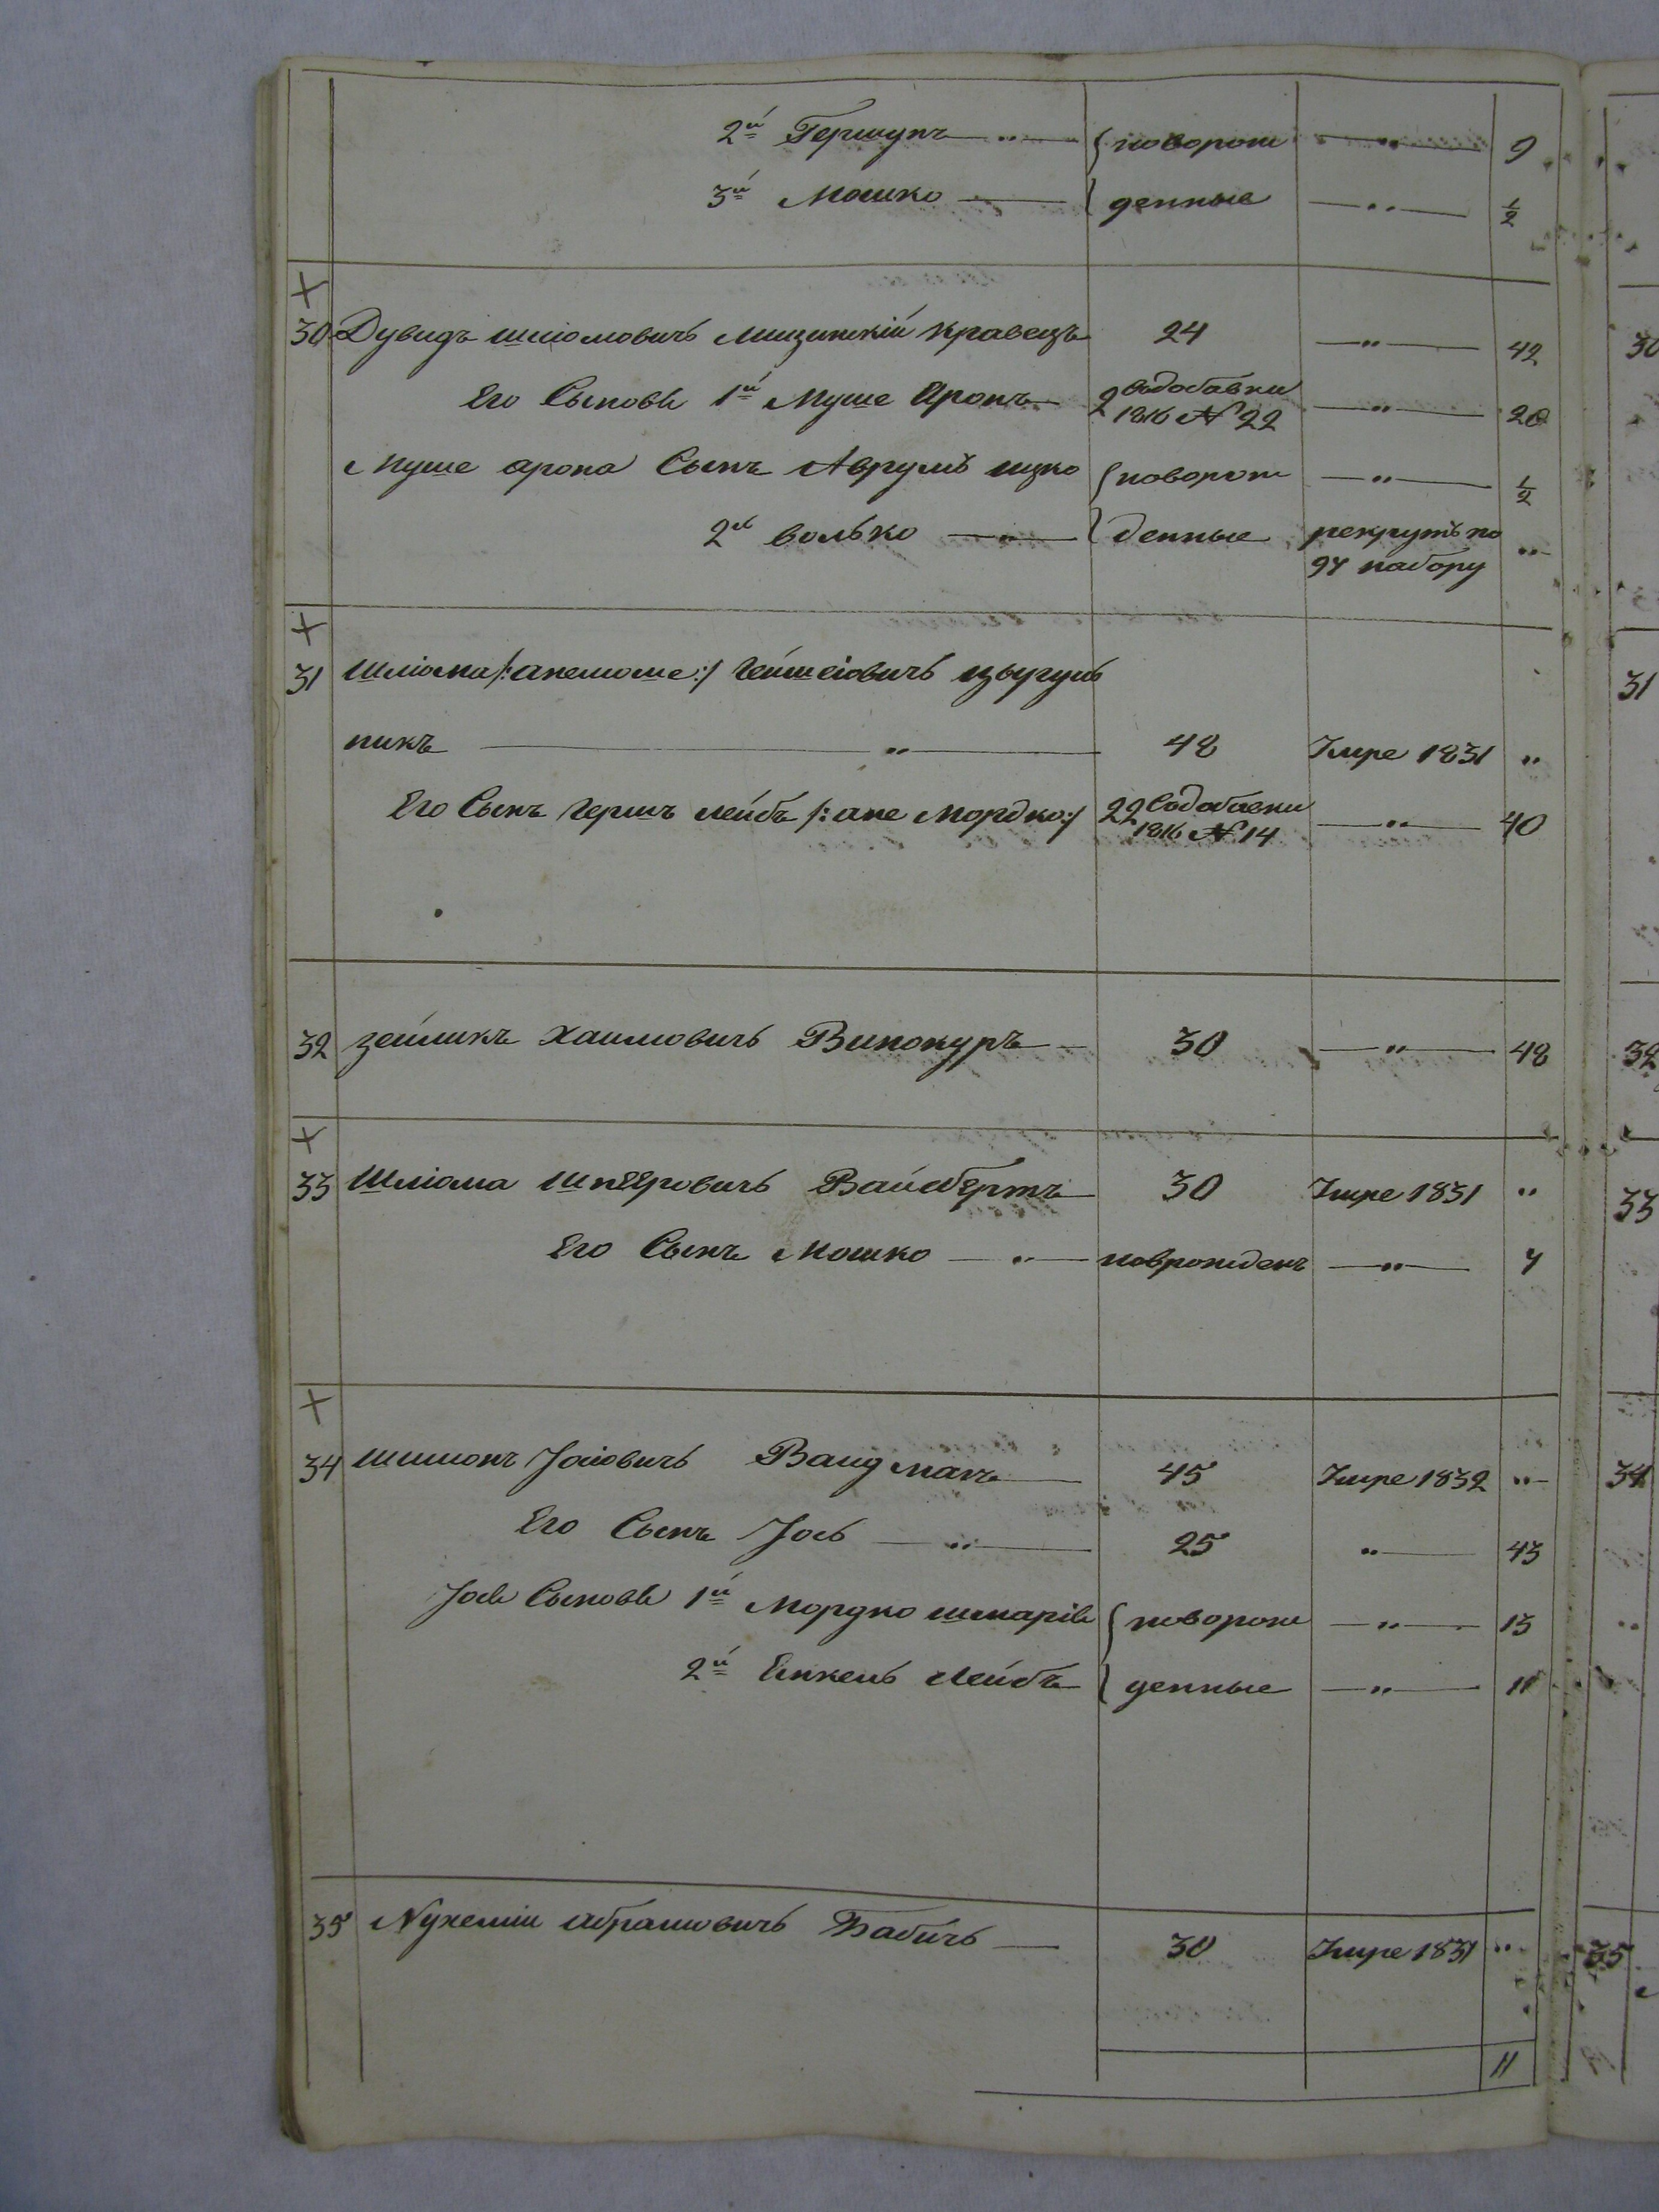 2й Гершунъ — „ — новорож — „ — 9
3й Мошко — денные — „ — ½
30 Дувидъ Шліомовичъ Мизинскій Кравецъ 24 — „ — 42
Его Сыновья 1й Муше Аронъ 2 Содобавки 1816 № 22 — „ — 20
Муше Арона Сынъ Аврумъ Ицко новорож — „ — ½
2й Волько — „ — денные рекрутъ по 97 набору „
31 Шліома /: анешоше :/ Гейшеіовичъ Цвугуль
никъ — „ — 48 Умре 1831 „
Его Сынъ Гершъ Лейбъ /: ане Мордко :/ 22 Содобавки 1816 № 14 — „ — 40
32 Зейликъ Хаимовичъ Винокуръ — 30 — „ — 48
33 Шліома Шнеровичъ Вайсбертъ 30 Умре 1831 „
Его Сынъ Мошко — „ — новрожденъ — „ — 7
34 Шимонъ Іосіовичъ Вайдманъ — 45 Умре 1832 „
Его Сынъ Іось — „ — 25 „ — 43
Іося Сыновья 1й Мордко Шмарія новорож — „ — 13
2й Енкель Лейбъ денные — „ — 11
35 Нухемій Абрамовичъ Бабичъ — 30 Умре 1831 „
11
30
31
32
33
34
35